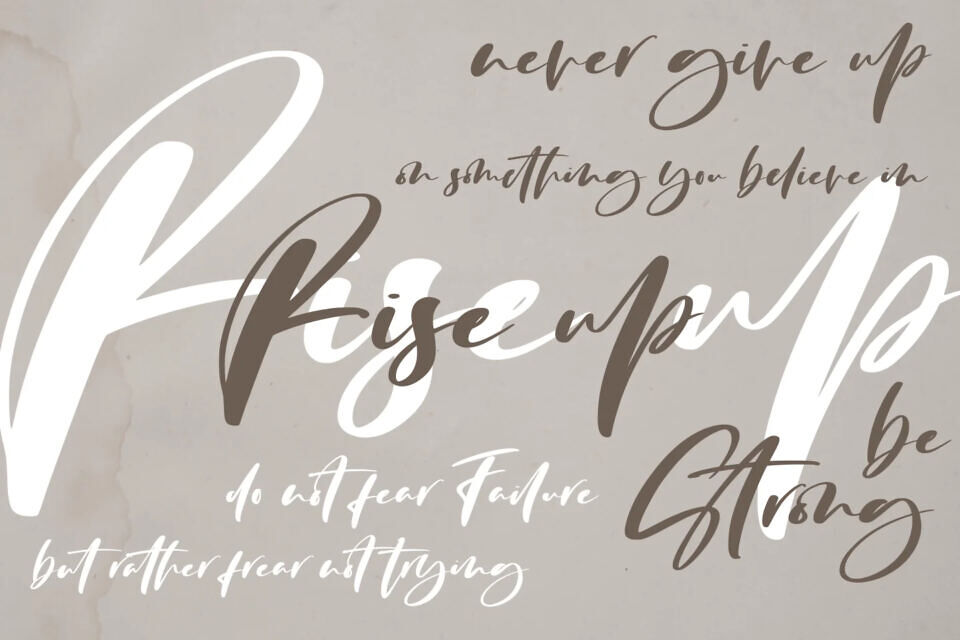 never give up
on something you believe in
Rise up
Rise up
be
Strong
do not fear Failure
but rather frear not trying